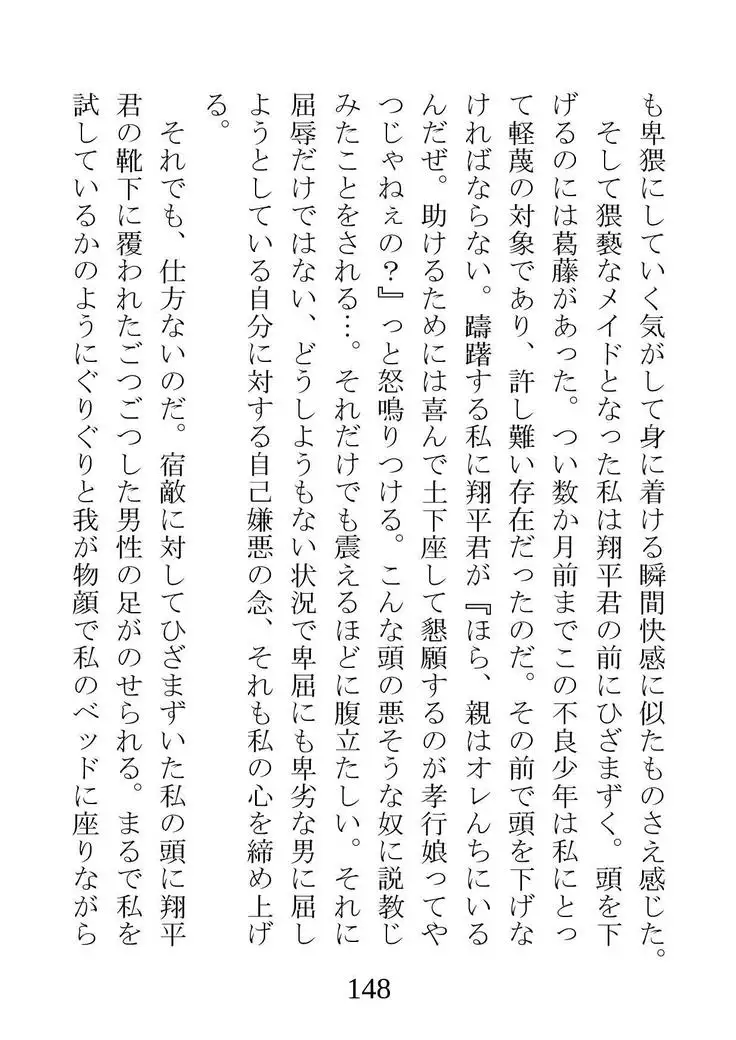 も卑猥にしていく気がして身に着ける瞬間快感に似たものさえ感じた。
そして猥褻なメイドとなった私は翔平君の前にひざまずく。頭を下
げるのには葛藤があった。つい数か月前までこの不良少年は私にとっ
て軽蔑の対象であり、許し難い存在だったのだ。その前で頭を下げな
ければならない。躊躇する私に翔平君が『ほら、親はオレんちにいる
んだぜ。助けるためには喜んで土下座して懇願するのが孝行娘ってや
つじゃねぇの？』っと怒鳴りつける。こんな頭の悪そうな奴に説教じ
みたことをされる…。それだけでも震えるほどに腹立たしい。それに
屈辱だけではない、どうしようもない状況で卑屈にも卑劣な男に屈し
ようとしている自分に対する自己嫌悪の念、それも私の心を締め上げ
る。
それでも、仕方ないのだ。宿敵に対してひざまずいた私の頭に翔平
君の靴下に覆われたごつごつした男性の足がのせられる。まるで私を
試しているかのようにぐりぐりと我が物顔で私のベッドに座りながら
148